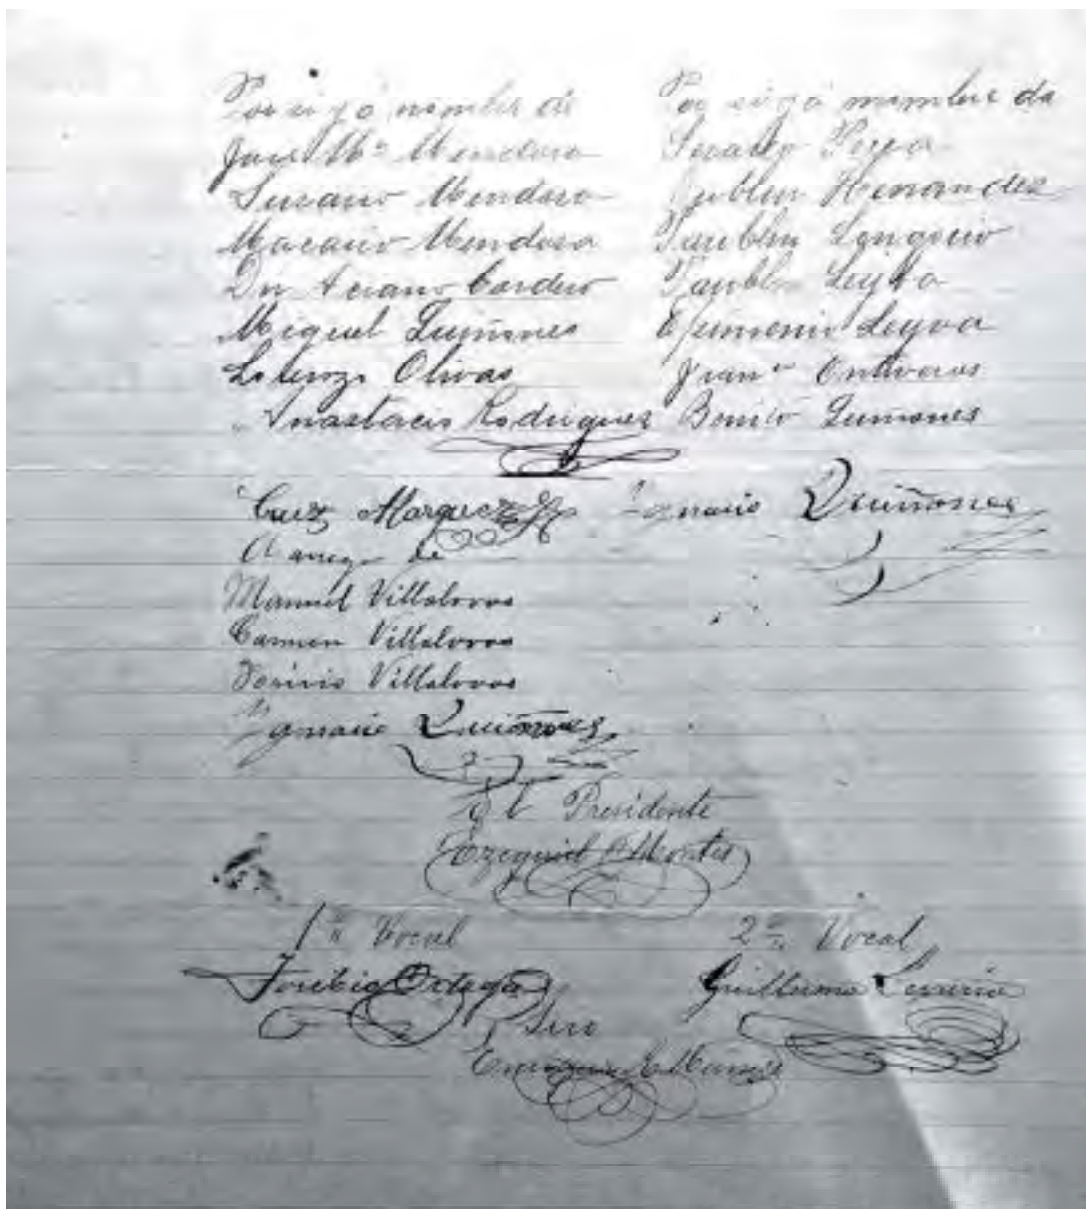 Por si y á nombre de
José Mª Mendosa
Susano Mendosa
Macario Mendosa
Cordero
Miguel Quiñones
Lorenzo Olivas
Anastacio Rodrigues
Por si y á nombre de
Leyva
Hernandez
Longorio
Leyva
Epimenio Leyva
Franco Ontiveros
Benito Quiñones
Cruz Marquez
Ignacio Quiñones
A ruego de
Manuel Villalovos
Carmen Villalovos
Villalovos
Ygnacio Quiñones
El Presidente
Ezequiel Montes
1er Vocal
2º Vocal
Toribio Ortega
Guillermo
Srio
Enrique